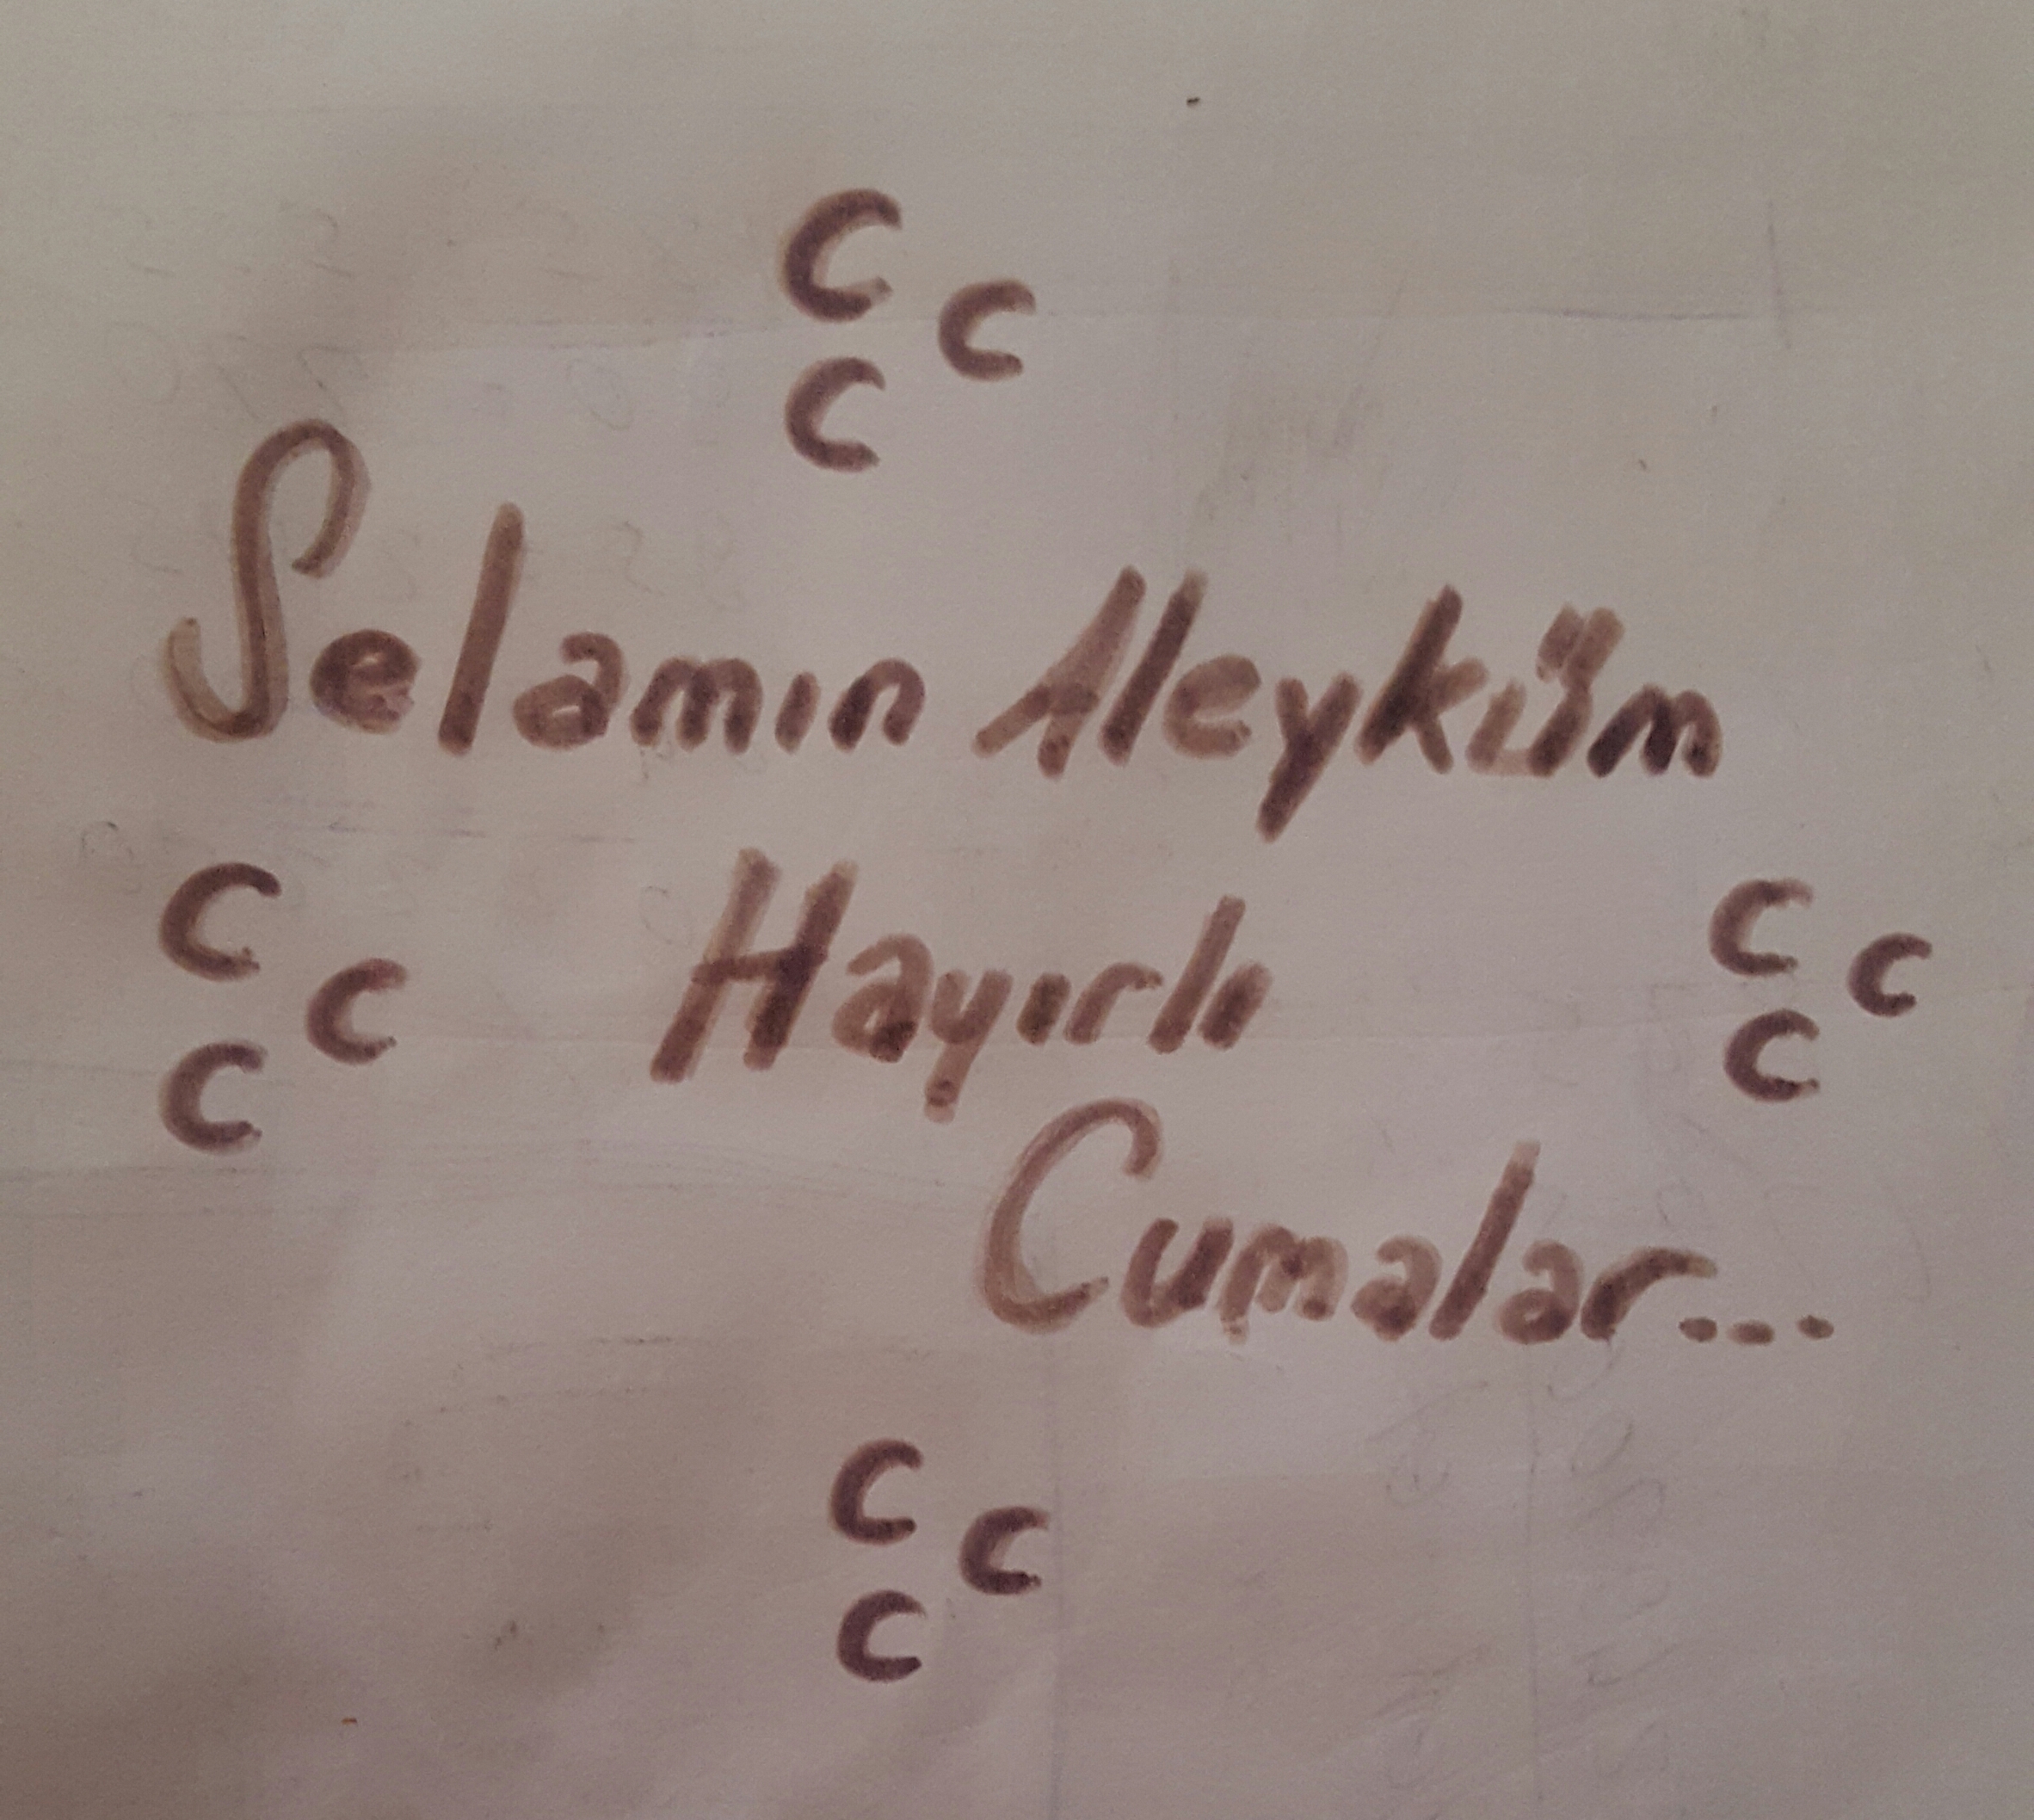 C
C
C
Selamın Aleyküm
C
C
C
Hayırlı
C
C
C
Cumalar...
C
C
C